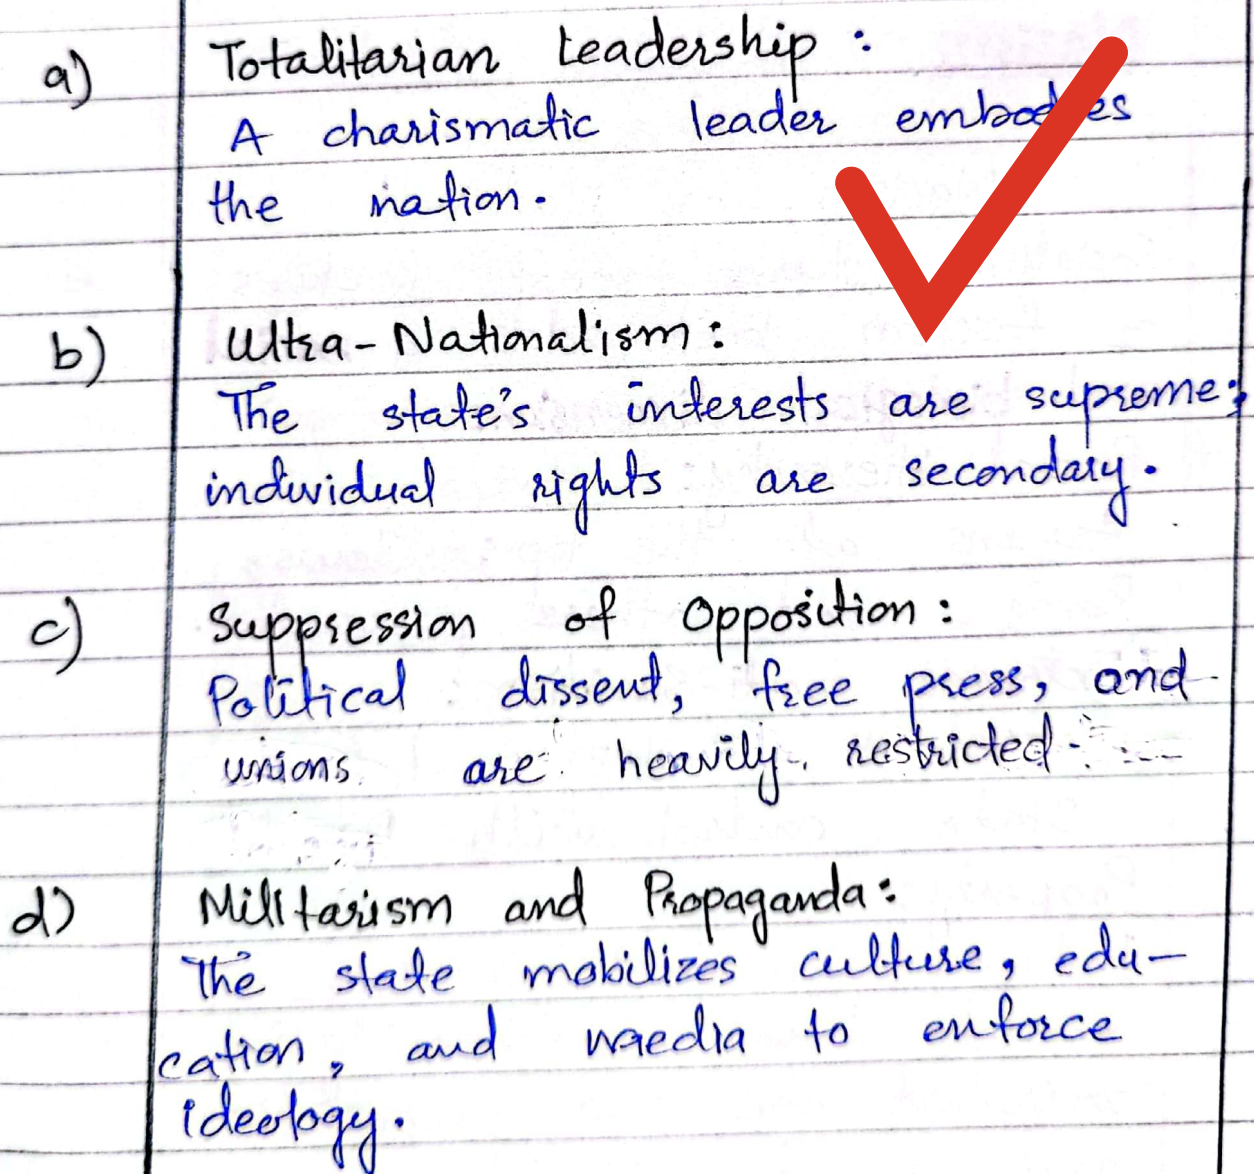 a) Totalitarian Leadership :
A charismatic leader embodies
the nation.
b) Ultra-Nationalism :
The state's interests are supreme;
individual rights are secondary.
c) Suppression of Opposition :
Political dissent, free press, and
unions are heavily restricted.
d) Militarism and Propaganda :
The state mobilizes culture, edu-
cation, and media to enforce
ideology.